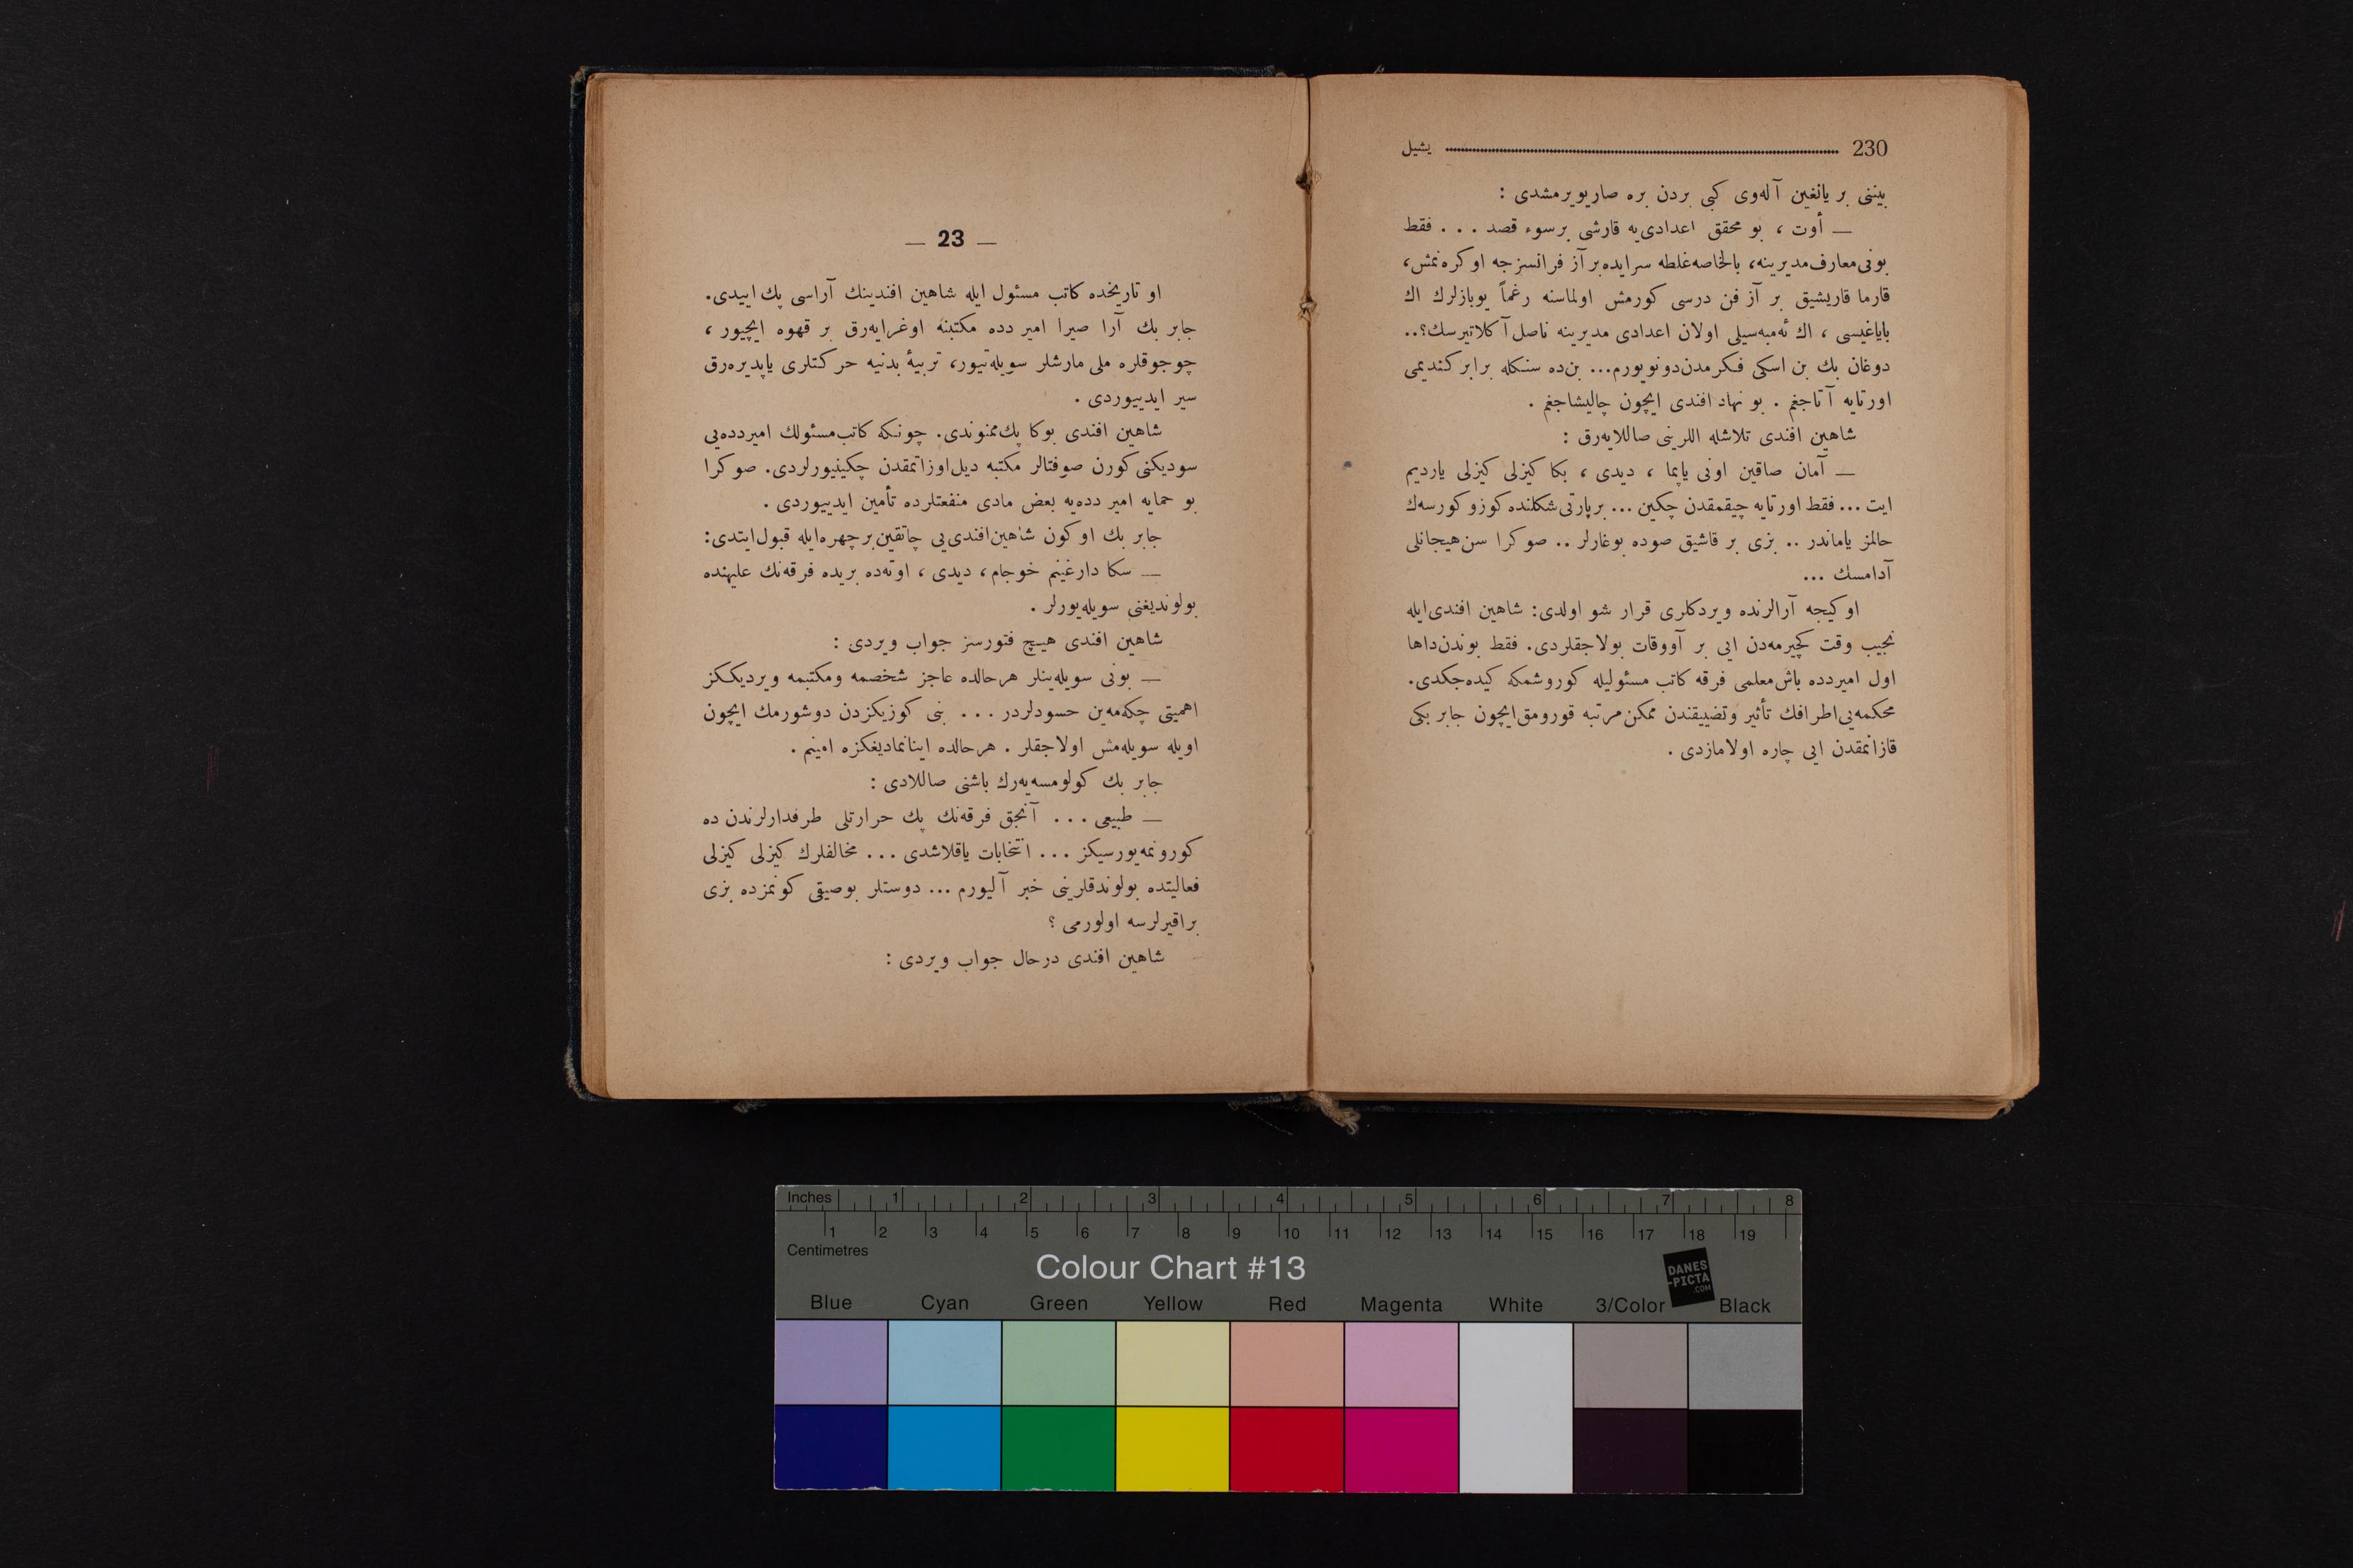 230 يشيل
بيننى بر يانغين آلەوى كبى بردن بره صاريويرمشدى :
— أوت ، بو محقق اعدادى‌يه قارشى برسوء قصد . . . فقط
بونى معارف مديرينه، بالخاصه غلطه سرايده بر آز فرانسزجه اوكره‌نمش،
قارما قاريشيق بر آز فن درسى كورمش اولماسنه رغماً يوبازلرك اك
باياغيسى ، اك ئه‌مبه‌سيلى اولان اعدادى مديرينه ناصل آكلاتيرسك؟..
دوغان بك بن اسكى فكرمدن دونويورم... بن‌ده سنكله برابر كنديمى
اورتايه آتاجغم . بو نهاد افندى ايچون چاليشاجغم .
شاهين افندى تلاشله اللرينى صاللايه‌رق :
— آمان صاقين اونى ياپما ، ديدى ، بكا كيزلى كيزلى يارديم
ايت ... فقط اورتايه چيقمقدن چكين ... برپارتى شكلنده كوزو كورسه‌ك
حالمز ياماندر .. بزى بر قاشيق صوده بوغارلر .. صوكرا سن هيجانلى
آدامسك ...
اوكيجه آرالرنده ويردكلرى قرار شو اولدى: شاهين افندى ايله
نجيب وقت كچيرمه‌دن ايى بر آووقات بولاجقلردى. فقط بوندن داها
اول اميردده باش‌معلمى فرقه كاتب مسئوليله كوروشمكه كيده‌جكدى.
محكمه‌يى اطرافك تأثير وتضييقندن ممكن مرتبه قورومق ايچون جابر بكى
قازانمقدن ايى چاره اولامازدى .
— 23 —
او تاريخده كاتب مسئول ايله شاهين افندينك آراسى پك اييدى.
جابر بك آرا صيرا امير دده مكتبنه اوغرايه‌رق بر قهوه ايچيور ،
چوجوقلره ملى مارشلر سويله‌تيور، تربيۀ بدنيه حركتلرى ياپديره‌رق
سير ايدييوردى .
شاهين افندى بوكا پك ممنوندى. چونكه كاتب مسئولك اميردده‌يى
سوديكنى كورن صوفتالر مكتبه ديل اوزاتمقدن چكينيورلردى. صوكرا
بو حمايه امير دده‌يه بعض مادى منفعتلرده تأمين ايدييوردى .
جابر بك اوكون شاهين افندى‌يى چاتقين بر چهره ايله قبول ايتدى:
— سكا دارغينم خوجام، ديدى ، اوته‌ده بريده فرقه‌نك عليهنده
بولونديغنى سويله‌يورلر .
شاهين افندى هيچ فتورسز جواب ويردى :
— بونى سويله‌ينلر هرحالده عاجز شخصمه ومكتبمه ويرديككز
اهميتى چكه‌مه‌ين حسودلردر . . . بنى كوزيكزدن دوشورمك ايچون
اويله سويله‌مش اولاجقلر . هرحالده اينانماديغكزه امينم .
جابر بك كولومسه‌يه‌رك باشنى صاللادى :
— طبيعى . . . آنجق فرقه‌نك پك حرارتلى طرفدارلرندن ده
كورونمه‌يورسيكز . . . انتخابات ياقلاشدى . . . مخالفلرك كيزلى كيزلى
فعاليتده بولوندقلرينى خبر آليورم ... دوستلر بوصيقى كونمزده بزى
براقيرلرسه اولورمى ؟
شاهين افندى درحال جواب ويردى :
Inches 1 2 3 4 5 6 7 8
1 2 3 4 5 6 7 8 9 10 11 12 13 14 15 16 17 18 19
Centimetres
Colour Chart #13
DANES
-PICTA
.COM
Blue Cyan Green Yellow Red Magenta White 3/Color Black